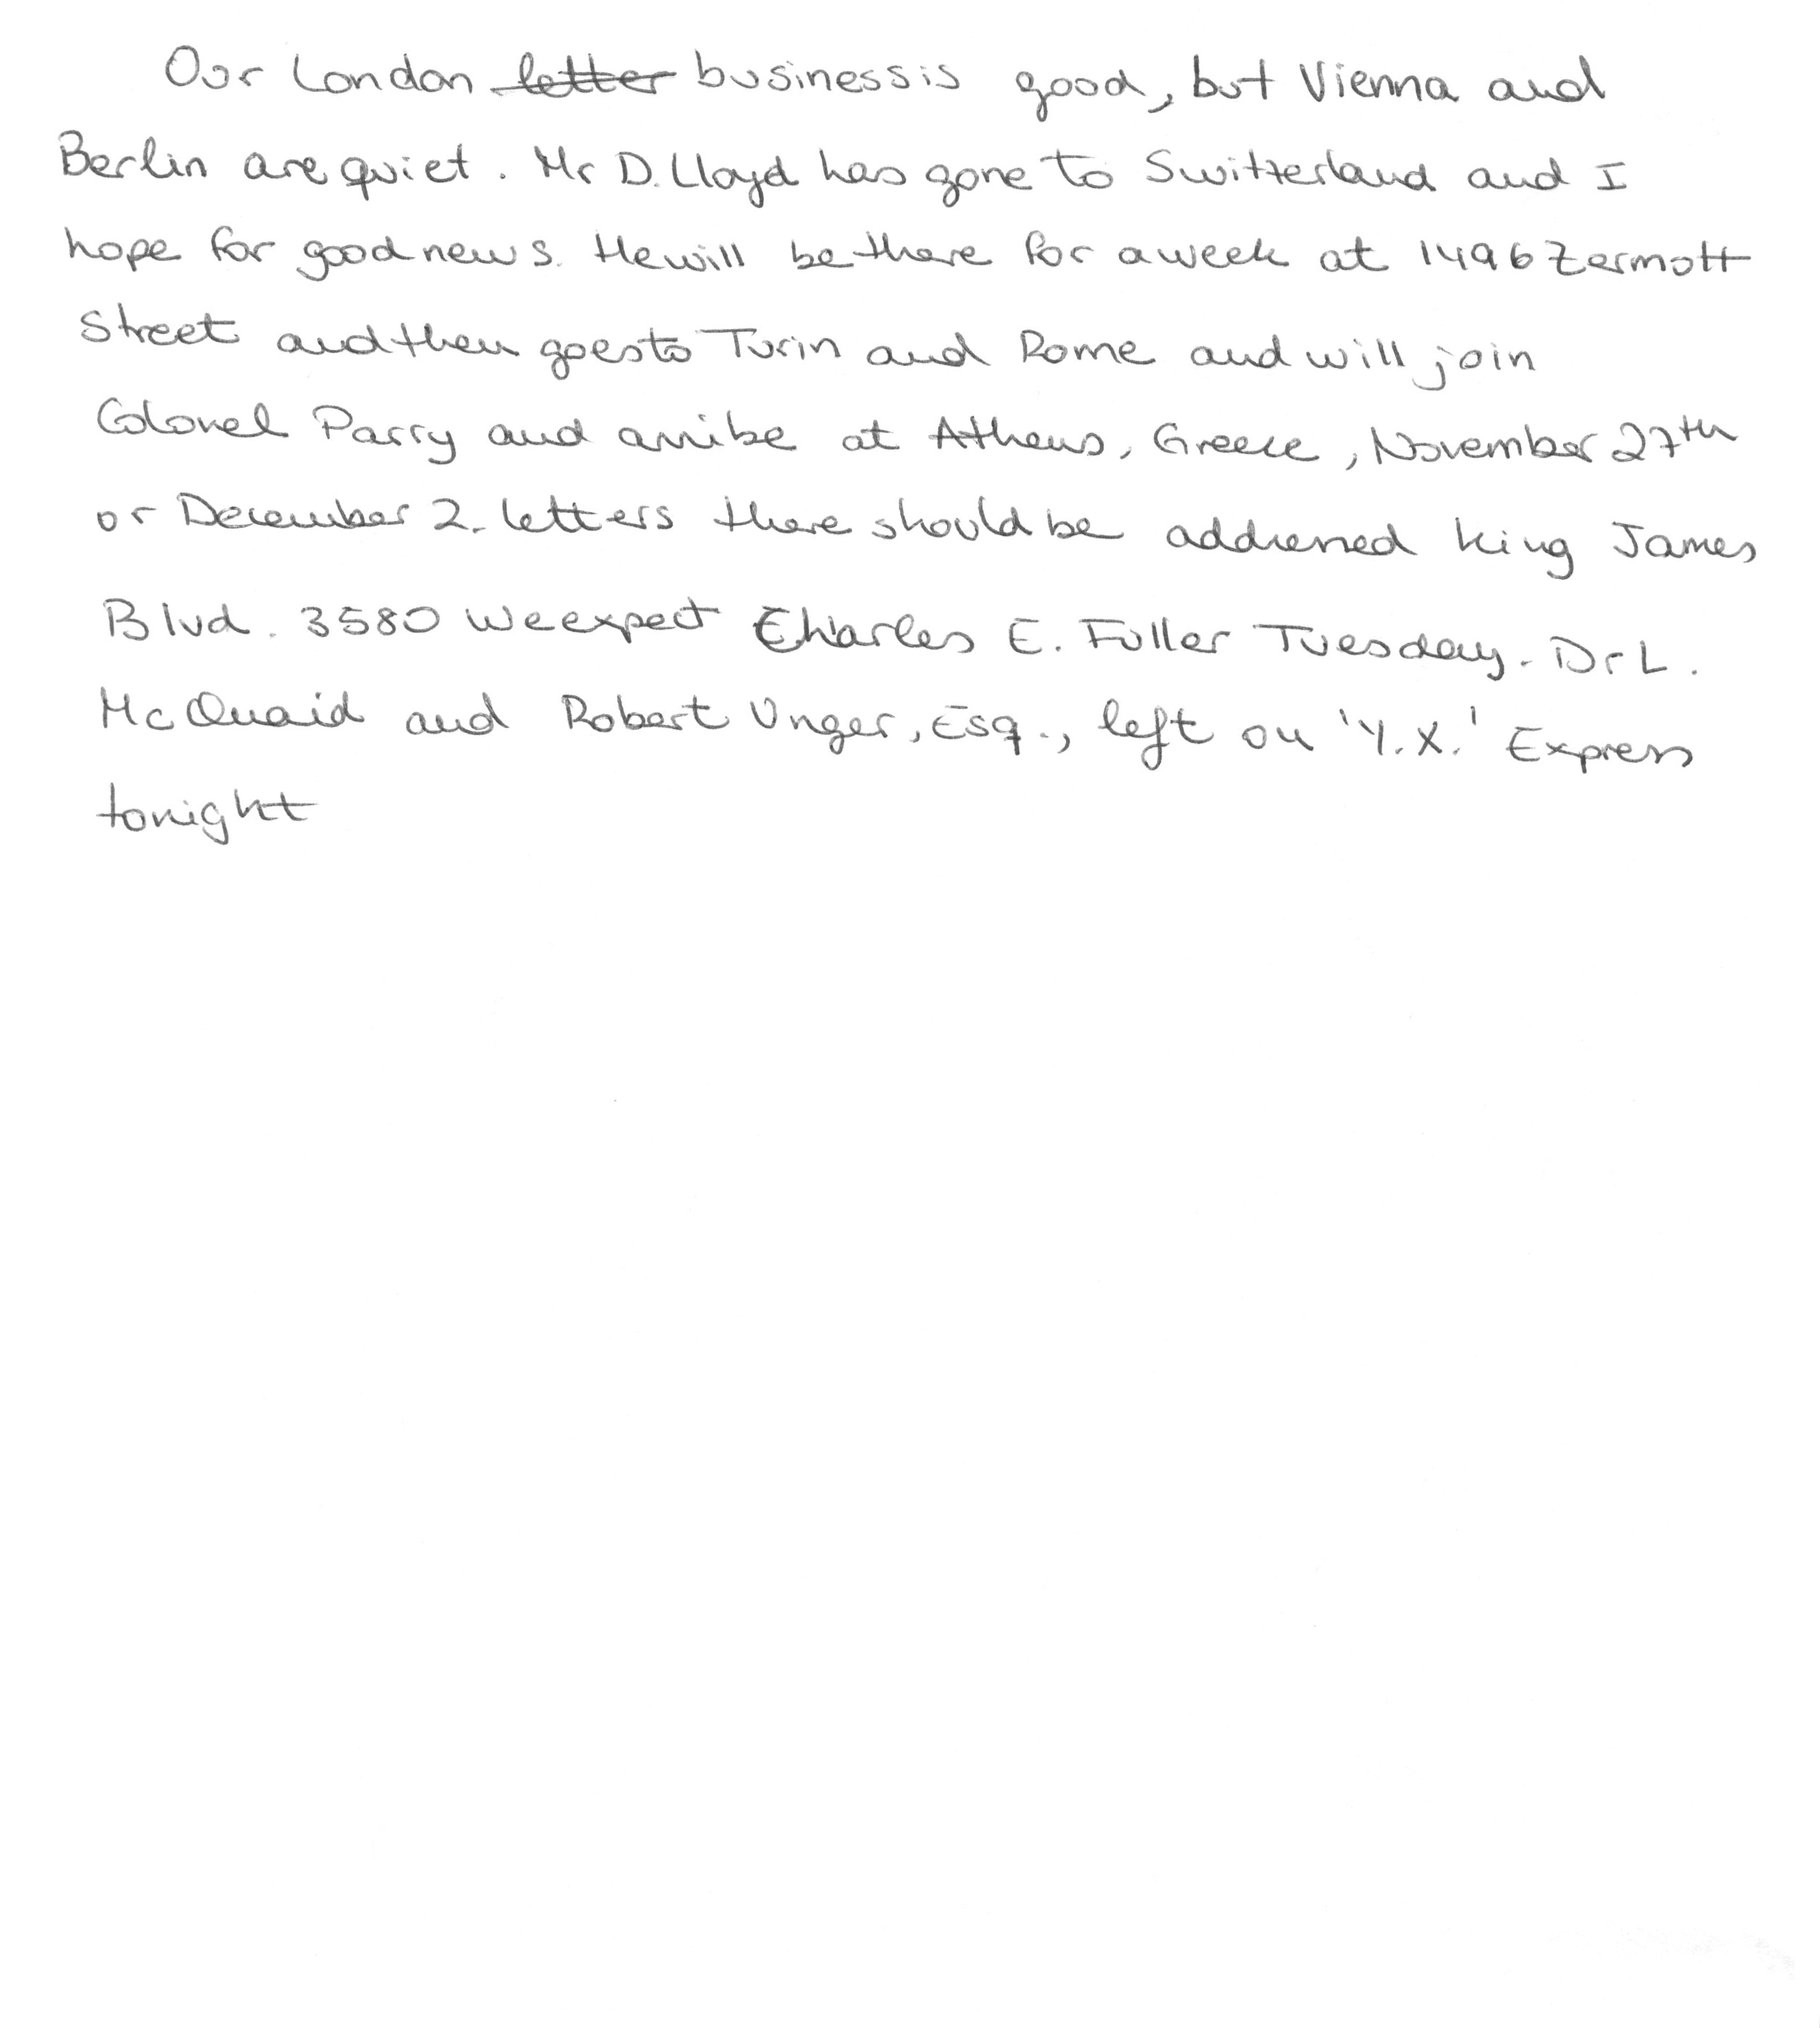 Our London letter business is good, but Vienna and
Berlin are quiet. Mr D. Lloyd has gone to Switzerland and I
hope for good news. He will be there for a week at 1496 Zermott
Street and then goes to Turin and Rome and will join
Colonel Parry and arribe at Athens, Greece, November 27th
or December 2. Letters there should be addressed King James
Blvd. 3580 We expect Charles E. Fuller Tuesday. Dr L.
McQuaid and Robert Unger, Esq., left on 'Y.X.' Express
tonight